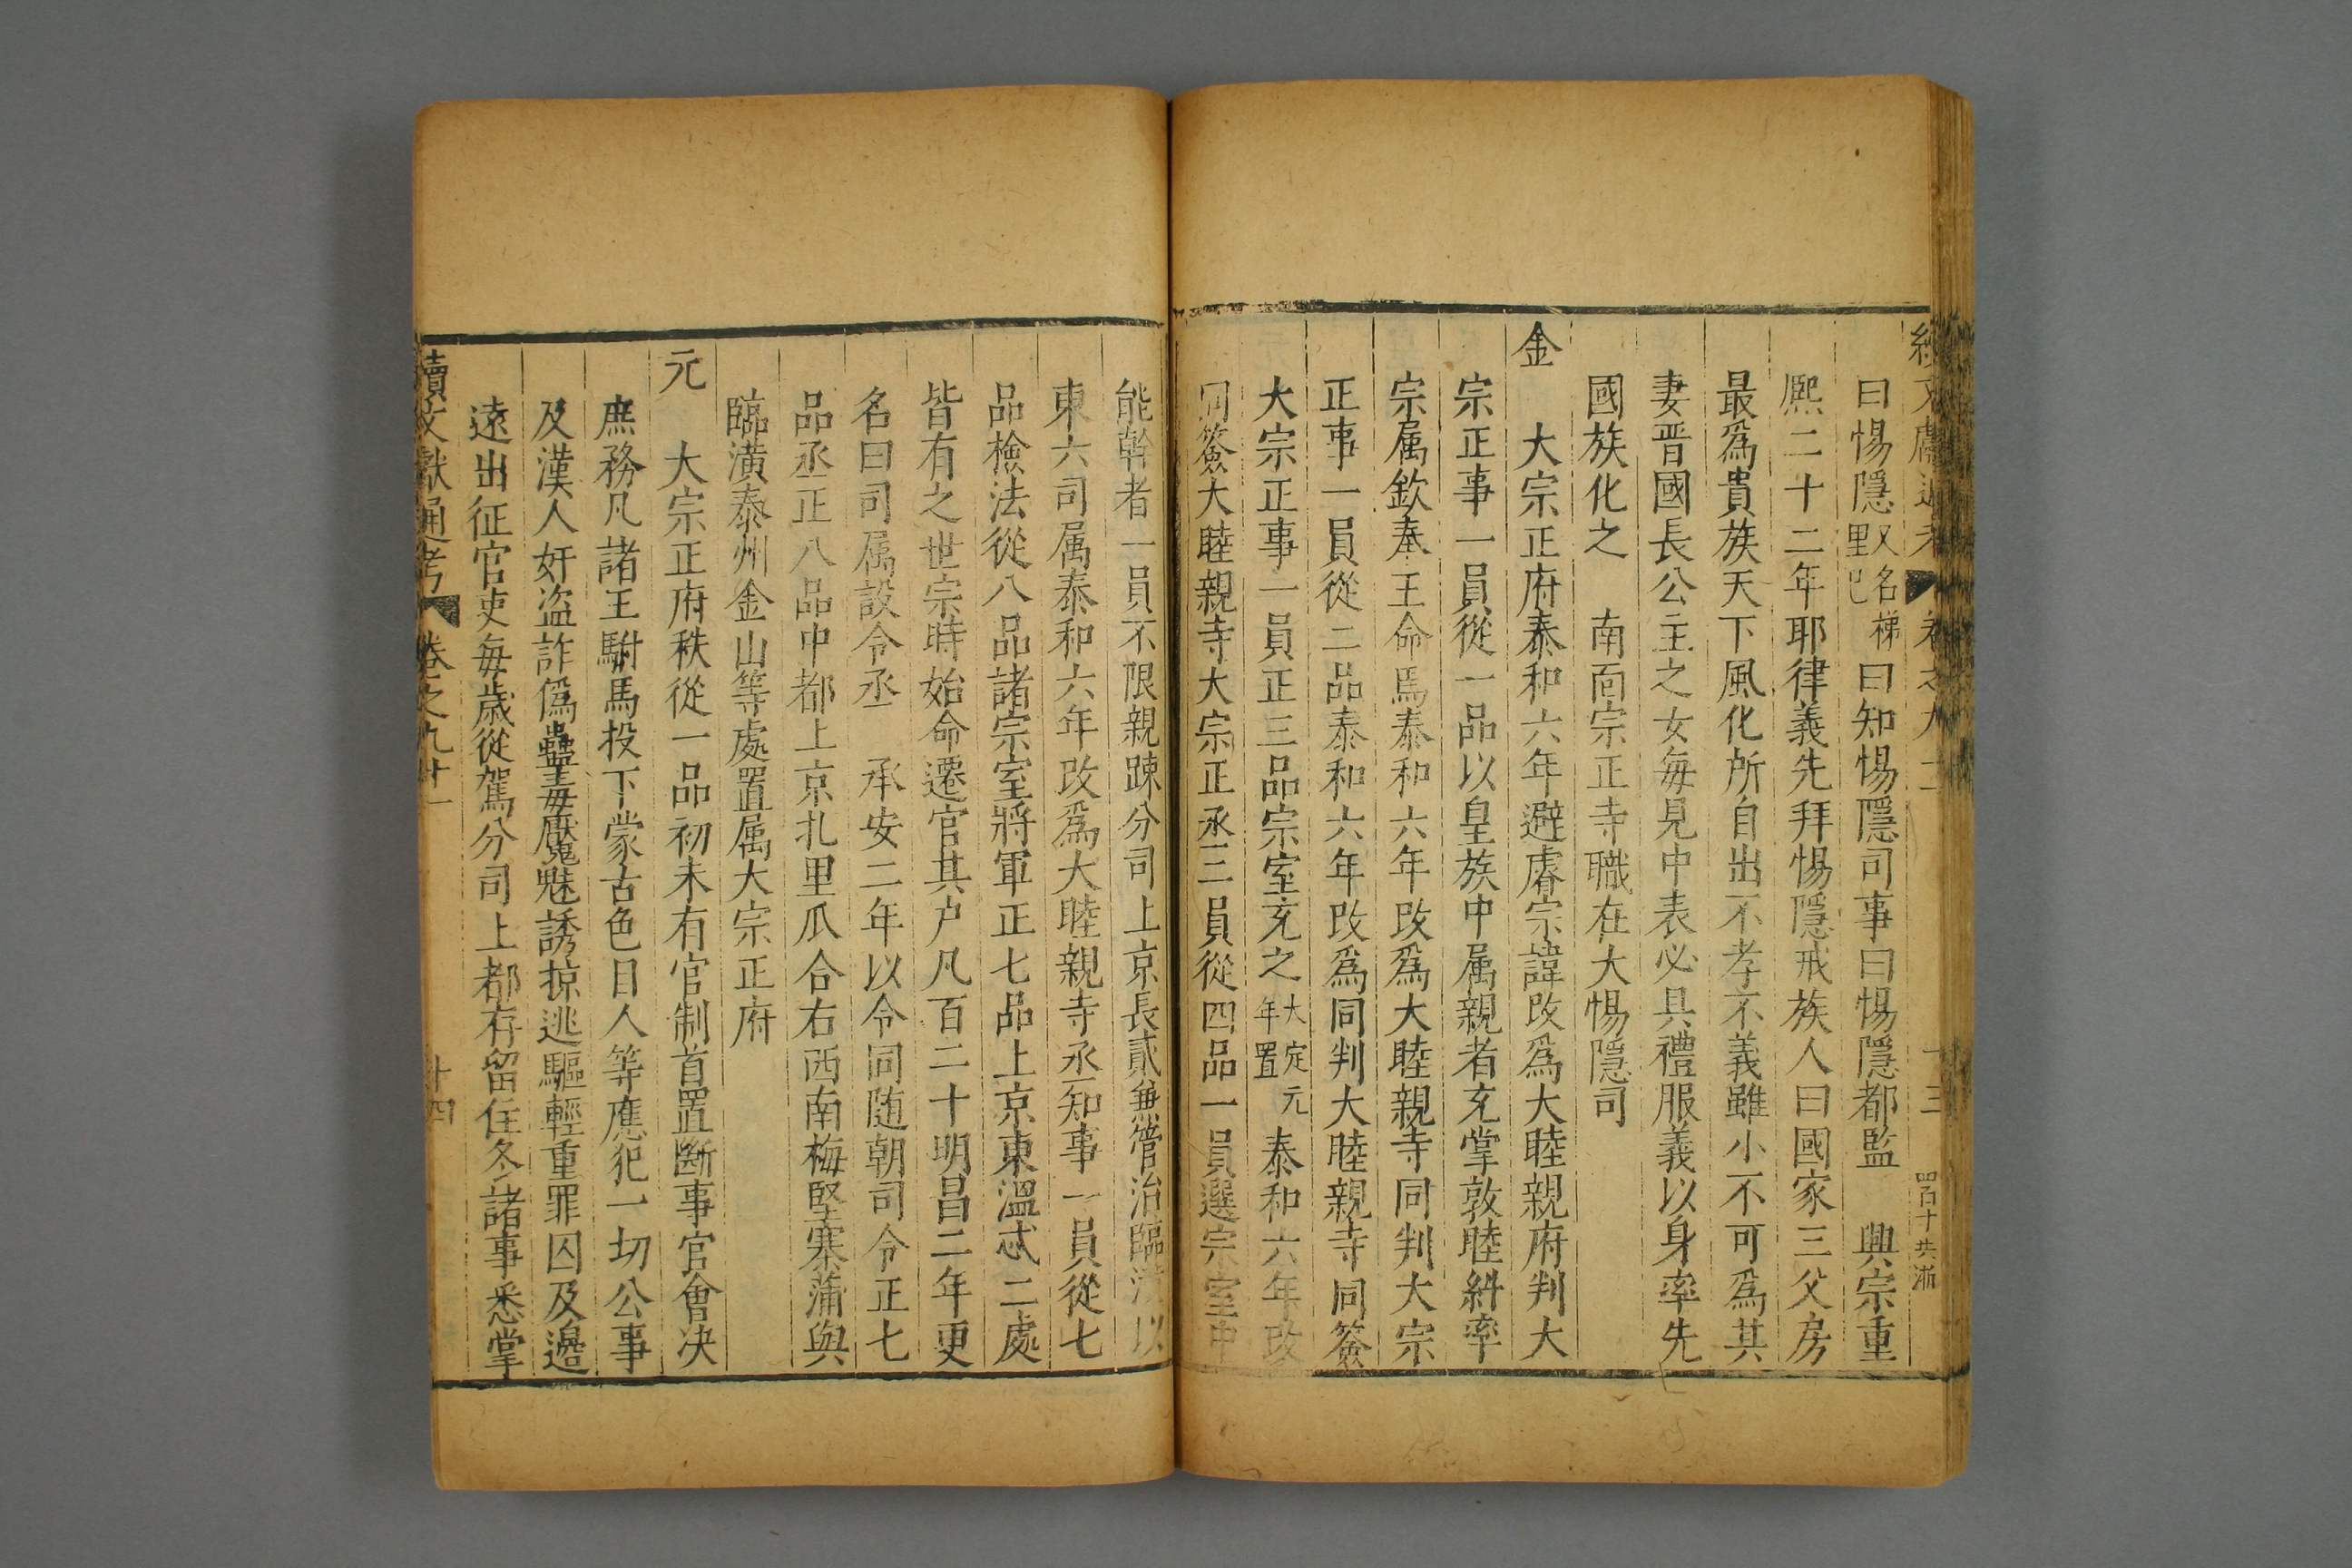 曰惕隱又名梯里已曰知惕隱司事曰惕隱都監　興宗重
熈二十二年耶律義先拜惕隱戒族人曰國家三父房
最爲貴族天下風化所自出不孝不義雖小不可爲其
妻晋國長公主之女每見中表必具禮服義以身率先
國族化之　南面宗正寺職在大惕隱司
金　大宗正府泰和六年避睿宗諱改爲大睦親府判大
宗正事一員從一品以皇族中属親者充掌敦睦糾率
宗属欽奉王命焉泰和六年改爲大睦親寺同判大宗
正事一員從二品泰和六年改爲同判大睦親寺同簽
大宗正事一員正三品宗室充之大定元年置泰和六年改
同簽大睦親寺大宗正丞三員從四品一員選宗室中
能幹者一員不限親踈分司上京長貳兼管治臨潢以
東六司属泰和六年改爲大睦親寺丞知事一員從七
品檢法從八品諸宗室將軍正七品上京東溫忒二處
皆有之世宗時始命遷官其户凡百二十明昌二年更
名曰司属設令丞　承安二年以令同随朝司令正七
品丞正八品中都上京扎里瓜合右西南梅堅寨蒲與
臨潢泰州金山等處置属大宗正府
元　大宗正府秩從一品初未有官制首置斷事官會决
庶務凡諸王駙馬投下蒙古色目人等應犯一切公事
及漢人奸盗詐僞蠱毒魘魅誘掠逃驅輕重罪囚及邉
遠出征官吏每歲從駕分司上都存留住冬諸事悉掌
續文獻通考　卷之九十一　十四